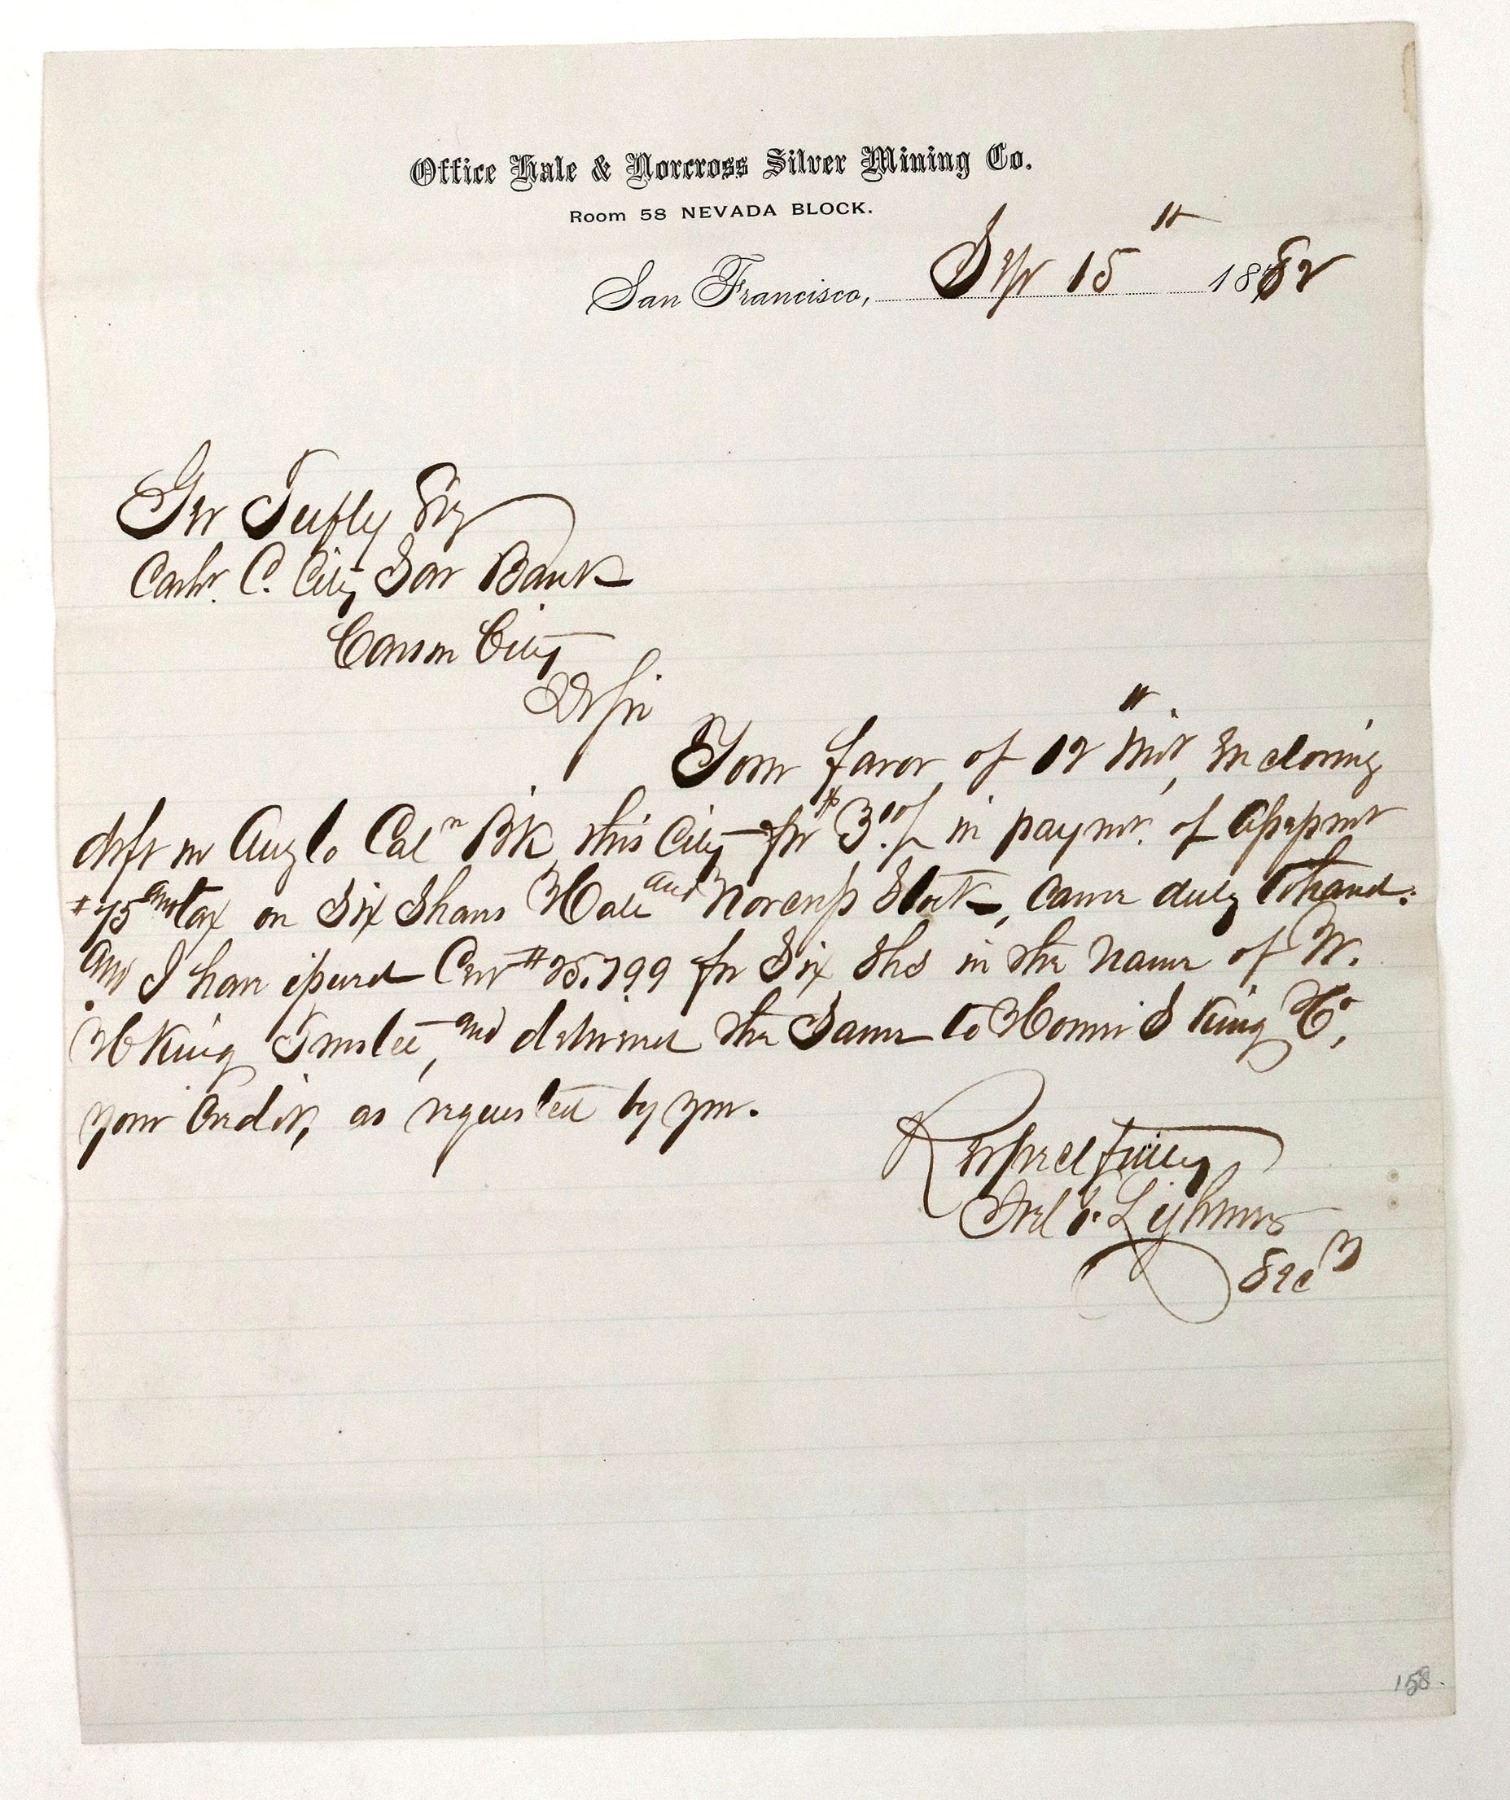 Office Hale & Norcross Silver Mining Co.
Room 58 NEVADA BLOCK.
San Francisco, Sep 15th 1882
Geo Tufly Esq
Cashr. C. City Sav Bank
Carson City
D Sir
Your favor of 12th inst, enclosing
drft on Anglo Caln Bk this City for $3.00/ in paymt. of Assessmt
#75 and tax on Six Shares Hale and Norcross Stock, came duly to hand.
and I have issued Cert #25.799 for Six Shs in the name of W.
H King Trustee, and delivered the Same to Homer S King &Co,
your Order, as requested by you.
Respectfully
Joel F. Lightner
Secy
158.